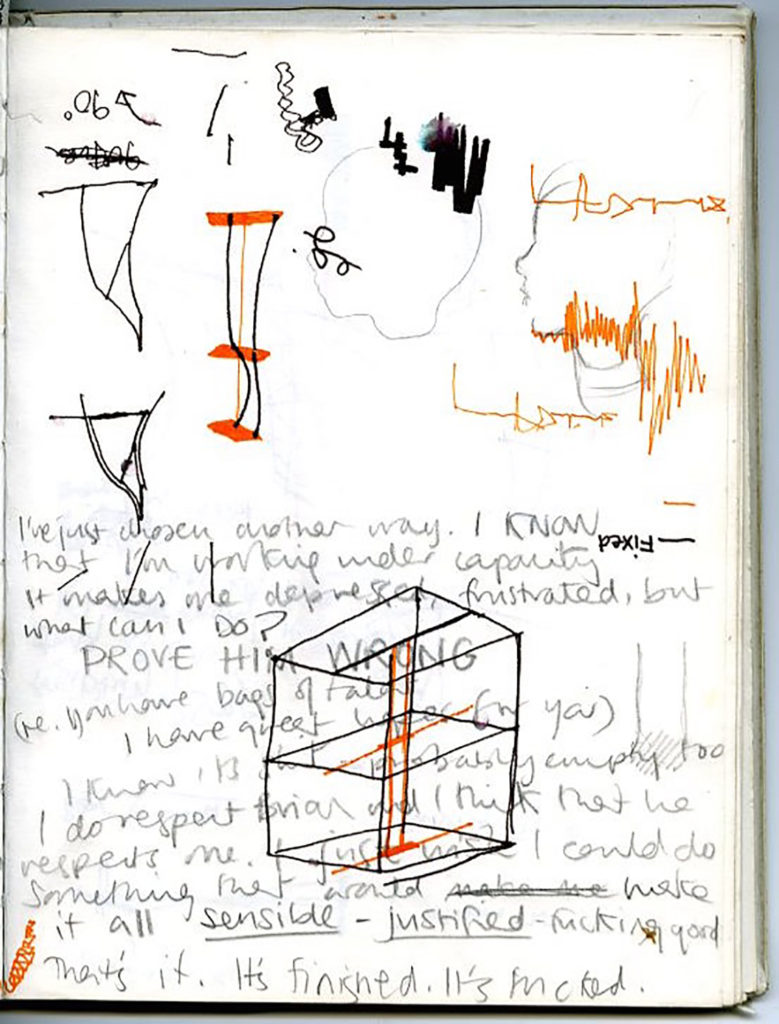 Fixed
I've just chosen another way. I KNOW
that I'm working under capacity
it makes me depressed, frustrated, but
what can I DO?
PROVE HIM WRONG
(ie. you have bags of talent
I have great hopes for you)
I know it's probably empty too
I do respect Brian and I think that he
respects me. I just wish I could do
something that would make me make
it all sensible - justified - fucking good
That's it. It's finished. It's fucked.